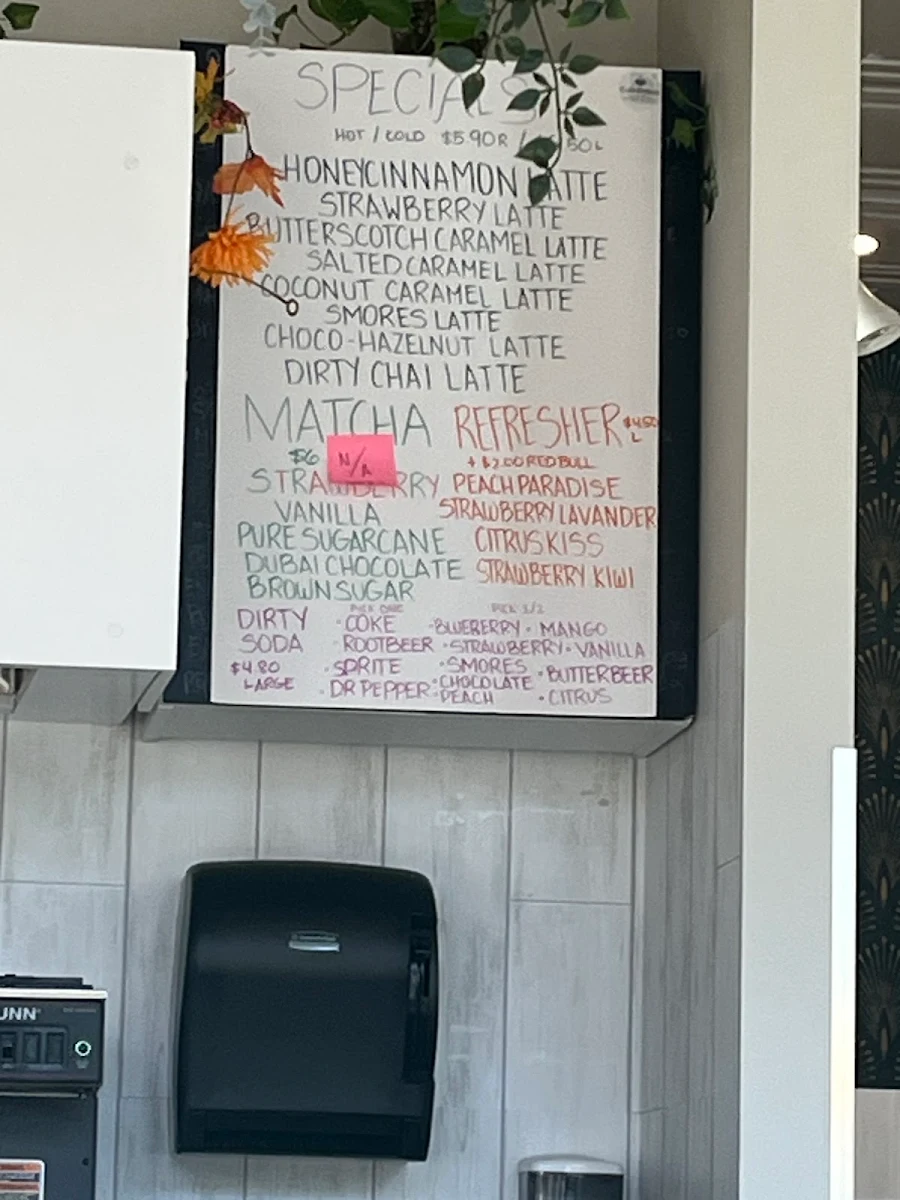 SPECIALS
HOT / COLD $5.90R / 50L
HONEYCINNAMON LATTE
STRAWBERRY LATTE
BUTTERSCOTCH CARAMEL LATTE
SALTED CARAMEL LATTE
COCONUT CARAMEL LATTE
SMORES LATTE
CHOCO-HAZELNUT LATTE
DIRTY CHAI LATTE
MATCHA
$6
N/A
STRAWBERRY
VANILLA
PURE SUGARCANE
DUBAI CHOCOLATE
BROWN SUGAR
REFRESHER $4.50 L
+ $2.00 RED BULL
PEACH PARADISE
STRAWBERRY LAVANDER
CITRUS KISS
STRAWBERRY KIWI
DIRTY
SODA
$4.80
LARGE
PICK ONE
· COKE
· ROOTBEER
· SPRITE
· DR PEPPER
PICK 1/2
· BLUEBERRY · MANGO
· STRAWBERRY · VANILLA
· SMORES · BUTTERBEER
· CHOCOLATE
· PEACH · CITRUS
UNN